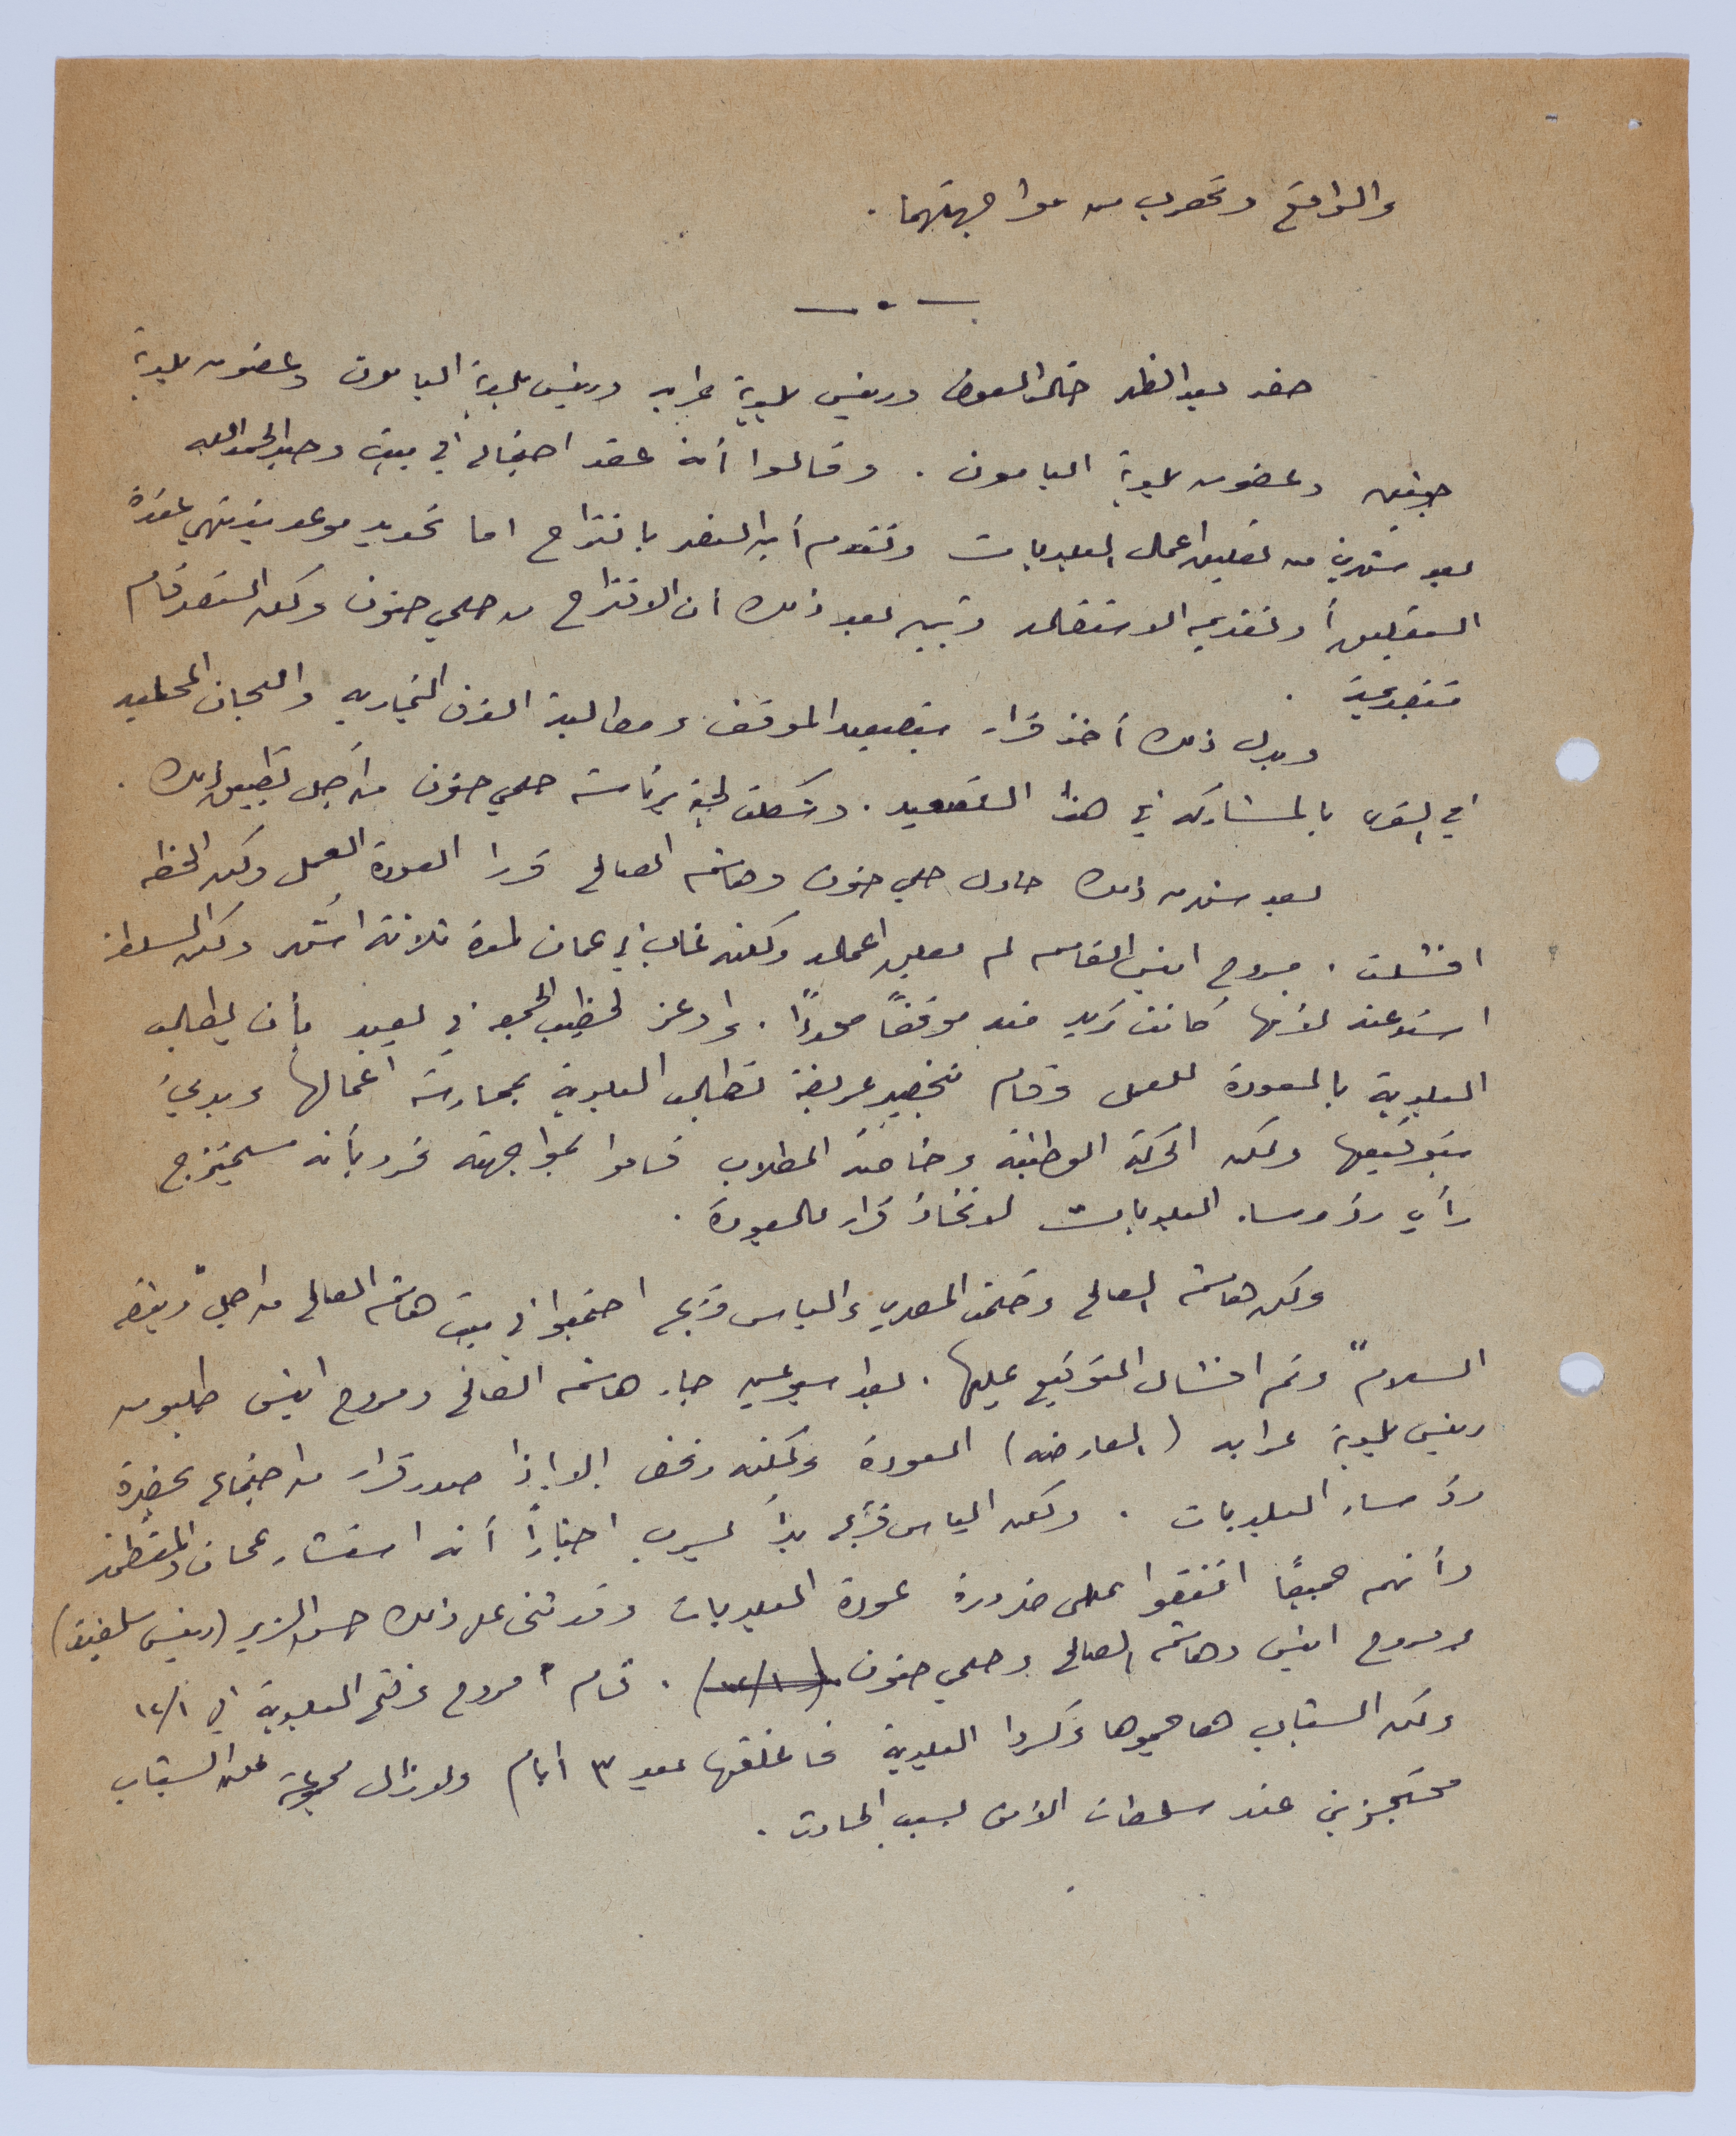 والواقع وتهرب من مواجهتهما.
حضر بعد الظهر خالد العوض ورئيس بلدية عرابه ورئيس بلدية اليامون وعضو من بلدية
جنين وعضو من بلدية اليامون. وقالوا أنه عقد اجتماع في بيت وحيد الحمدالله
بعد شهرين من تعليق اعمال البلديات وتقدم أبو السعد باقتراح اما تحديد موعد ينتهي عنده
التعليق أو تقديم الاستقاله وتبين بعد ذلك ان الاقتراح من حلمي حنون ولكن السعد قام
بتقديمه.
وبدل ذلك أخذ قرار بتصعيد الموقف ومطالبة الغرف التجاريه واللجان المحليه
في القرى بالمشاركه في هذا التصعيد. وشكلت لجنه برئاسة حلمي حنون من أجل تطبيق ذلك.
بعد شهر من ذلك حاول حلمي حنون وهاشم الصالح قرار العودة للعمل ولكن الخطه
افشلت. مروح انيس القاسم لم يعلق اعماله ولكنه غاب في عمان لمدة ثلاثة أشهر ولكن السلطة
استدعته لأنها كانت تريد منه موقفاً محدداً. وأوعز لخطيب الجمعه في يعبد بأن يطالب
البلدية بالعودة للعمل وقام بتحضير عريضة تطالب البلدية بممارسة اعمالها وبدئ
بتوقيعها ولكن الحركة الوطنية وخاصة الطلاب قاموا بمواجهته فرد بأنه سيمتزج
رأي رؤوساء البلديات لاتخاذ قرار بالعودة.
ولكن هاشم الصالح وحكمت المصري والياس فريج اجتمعوا في بيت هاشم الصالح من اجل "عريضة
السلام" وتم افشال التوقيع عليها. بعد اسبوعين جاء هاشم الصالح ومروح انيس طلبوا من
رئيس بلدية عرابه (المعارضه) العودة ولكنه رفض الا اذا صدر قرار من اجتماع يحضره
رؤساء البلديات. ولكن الياس فريج بدأ يسرب اخباراً أنه استشار عمان والمنظمة
وأنهم جميعاً اتفقوا على ضرورة عودة البلديات وقد ثنى على ذلك حسن الزير (رئيس سلفيت)
ومروح انيس وهاشم الصالح وحلمي حنون (١٢/١). قام مروح وفتح البلدية في ١٢/١
ولكن الشباب هاجموها وكسروا البلدية فاغلقها بعد ٣ ايام ولا زال مجموعة من الشباب
محتجزين عند سلطات الأمن بسبب الحادث.